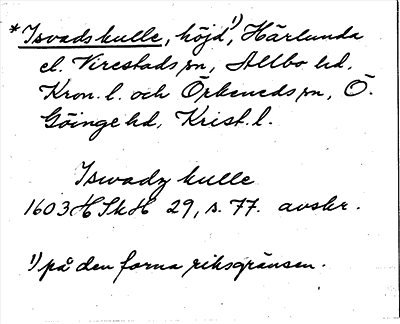 *Isvadskulle, höjd¹⁾, Härlunda
el. Virestads sn, Allbo hd,
Kron. l. och Örkeneds sn, Ö.
Göinge hd, Krist. l.
Iswadz kulle
1603 HSkH 29, s. 77. avskr.
¹⁾ på den forna riksgränsen.